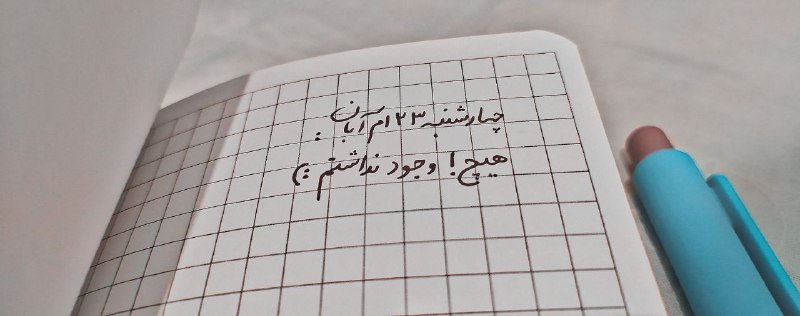 چهارشنبه ۲۳ ام آبان :
هیچ! وجود نداشتم :)